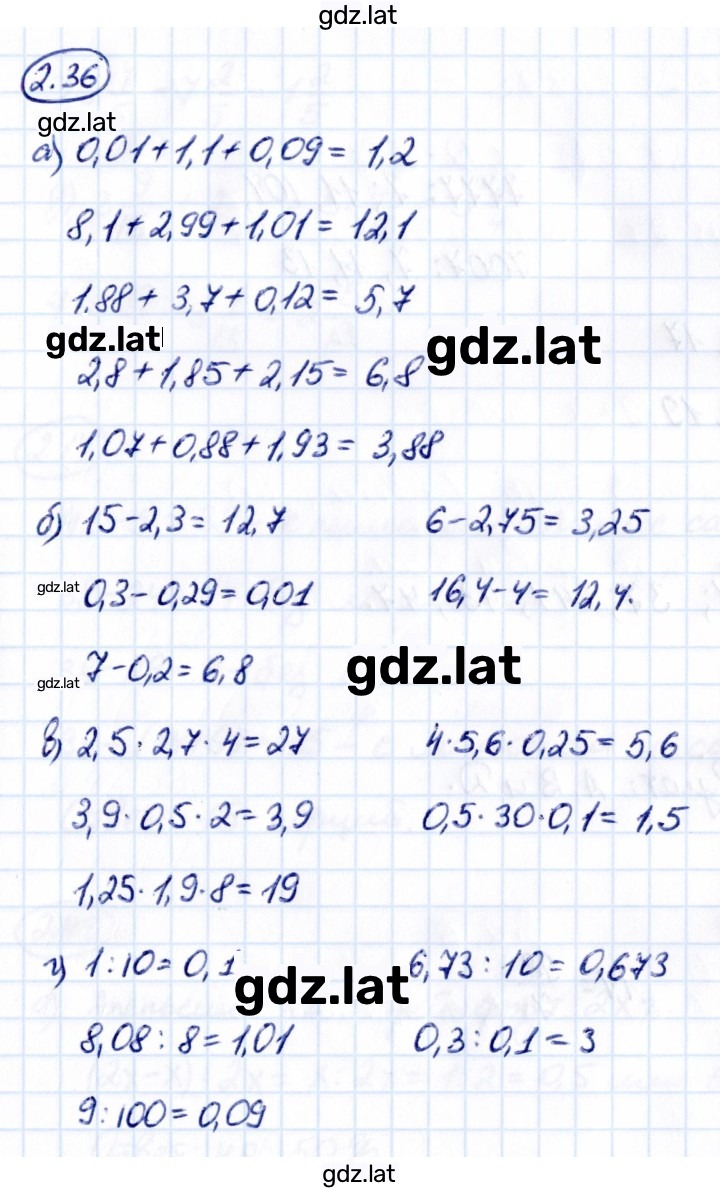 gdz.lat
2.36
gdz.lat
а) 0,01+1,1+0,09= 1,2
8,1+2,99+1,01= 12,1
1.88+ 3,7+0,12= 5,7
gdz.lat gdz.lat
2,8+1,85+2,15= 6,8
1,07+0,88+1,93= 3,88
б) 15-2,3= 12,7 6-2,75= 3,25
gdz.lat 0,3-0,29=0,01 16,4-4= 12,4.
gdz.lat 7-0,2=6,8 gdz.lat
в) 2,5·2,7·4=27 4·5,6·0,25= 5,6
3,9·0,5·2=3,9 0,5·30·0,1= 1,5
1,25·1,9·8=19
г) 1:10= 0,1 gdz.lat 6,73:10= 0,673
8,08:8=1,01 0,3:0,1=3
9:100=0,09
gdz.lat